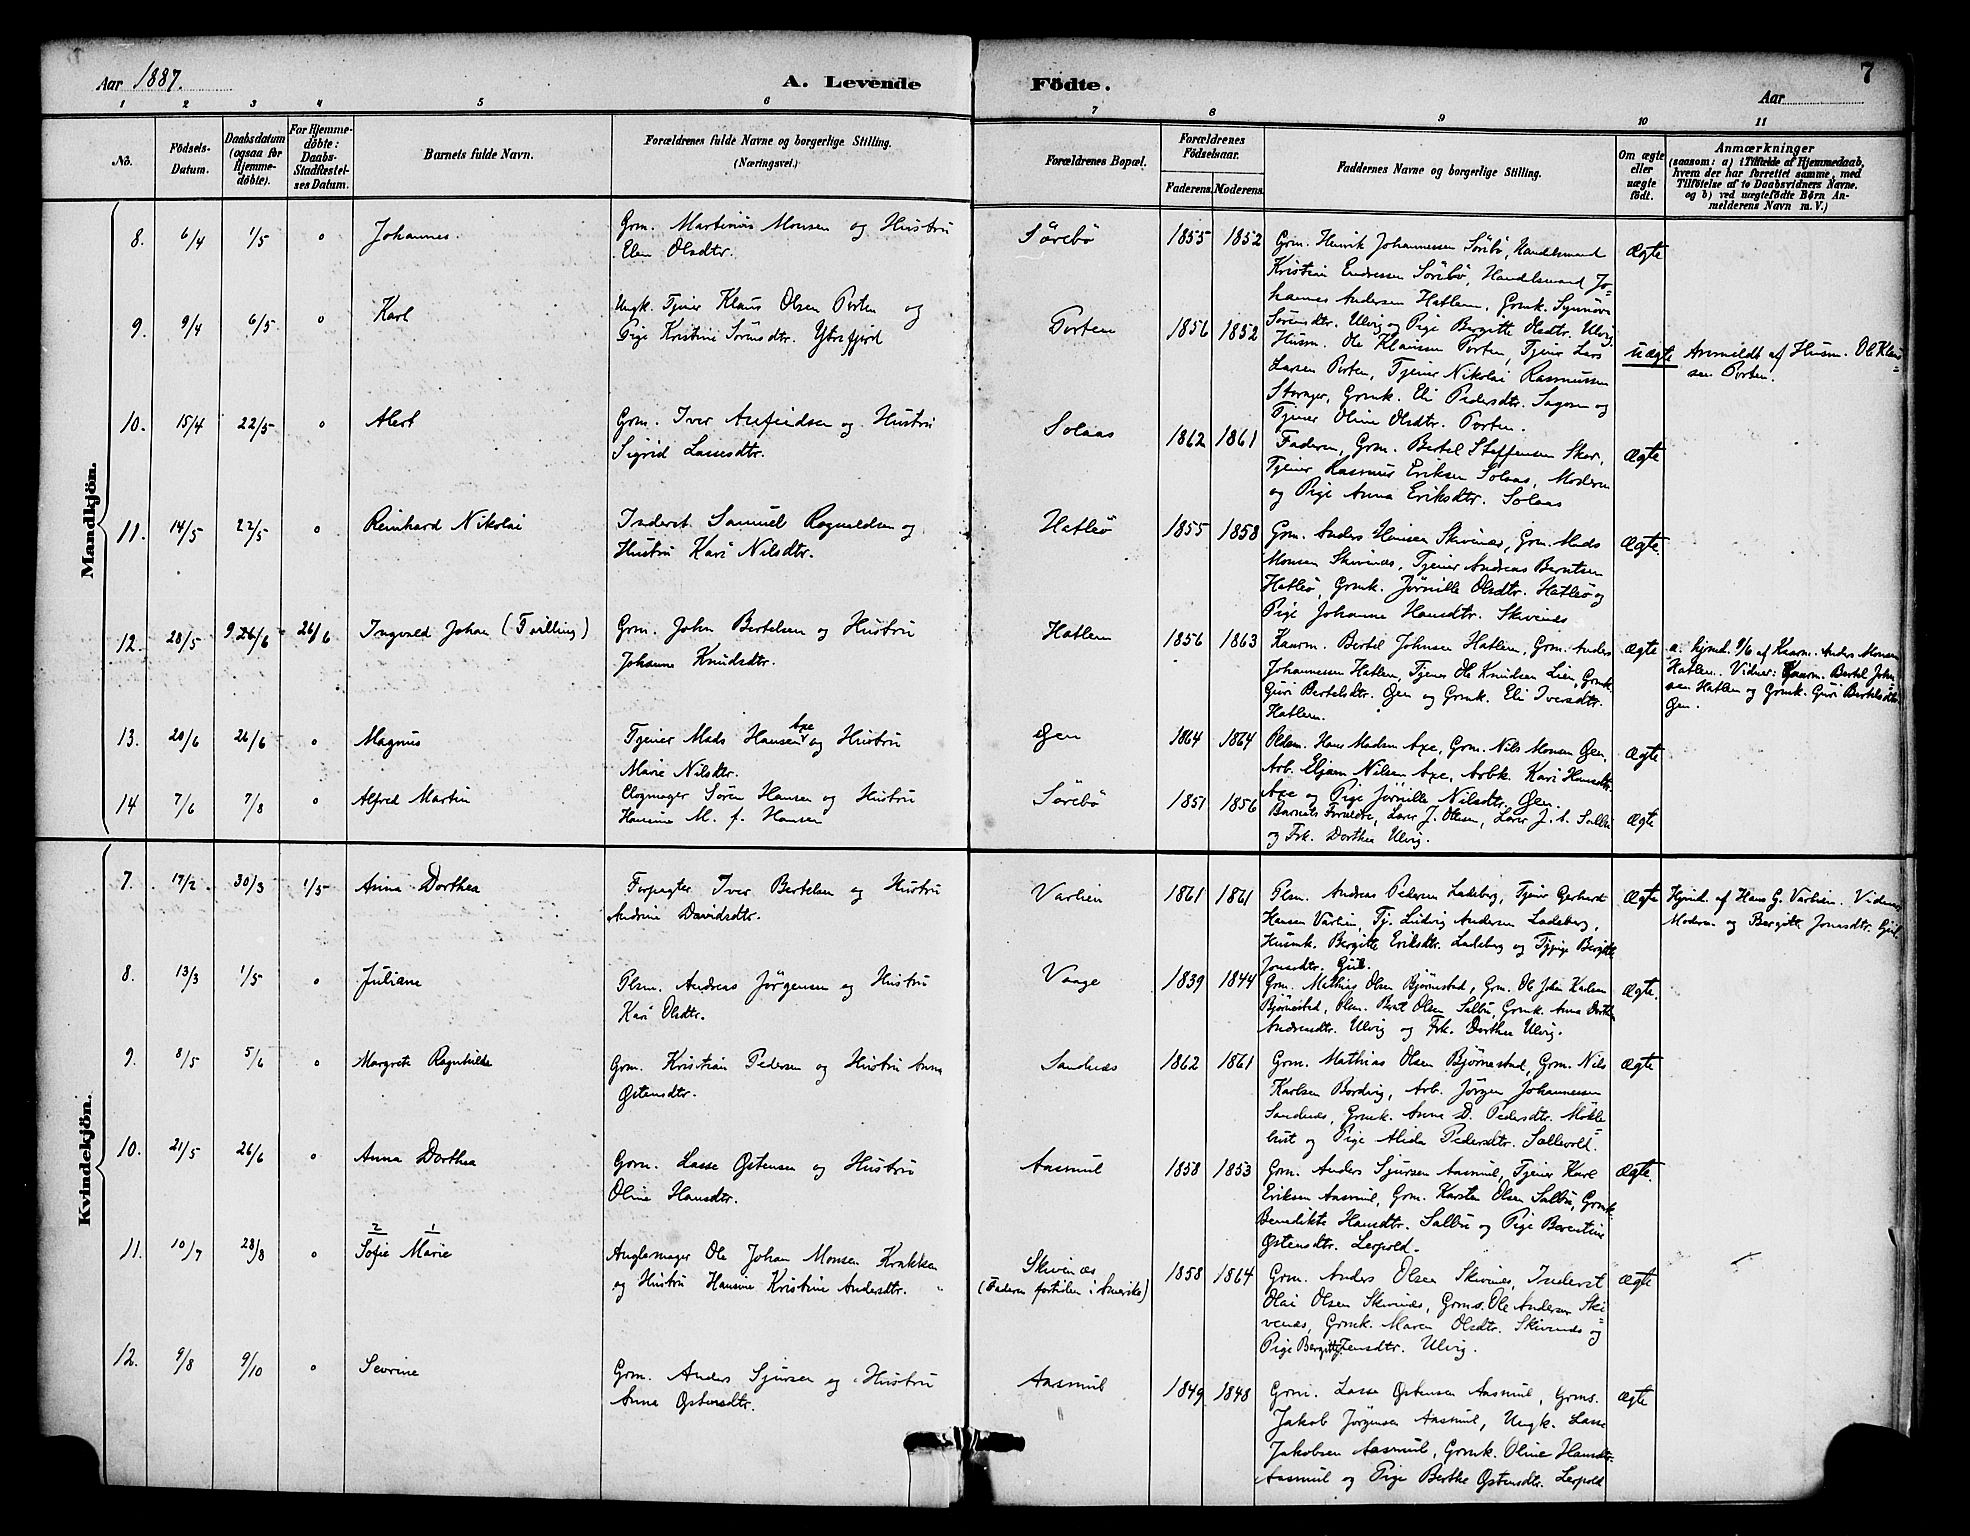 Aar 1887.
A. Levende Födte.
7
Aar
1 2 3 4 5 6 7 8 9 10 11
No.
Födsels-Datum.
Daabsdatum (ogsaa for Hjemme-døbte).
For Hjemme-døbte: Daabs-Stadfæstel-ses Datum.
Barnets fulde Navn.
Forældrenes fulde Navne og borgerlige Stilling. (Næringsvei.)
Forældrenes Bopæl.
Forældrenes Födselsaar.
Faderens. Moderens.
Faddernes Navne og borgerlige Stilling.
Om ægte eller uægte födt.
Anmærkninger
(saasom: a) i Tilfælde af Hjemmedaab,
hvem der har forrettet samme, med
Tilføielse af to Daabsvidners Navne.
og b) ved uægtefödte Börn An-
melderens Navn m. V.)
Mandkjön.
8. 6/4 1/5 o Johannes. Grm. Martinus Monsen og Hustru
Elen Olsdtr.
Sørebö 1855 1852 Grm. Henrik Johannessen Sörebö, Handelsmand
Kristian Endresen Sörebö, Handelsmand Jo=
hannes Andersen Hatlem, Grmk. Synnöve
Sörensdtr. Ulvig og Pige Bergitte Olsdtr. Ulvig
Ægte
9. 9/4 6/5 o Karl Ungk. Tjener Klaus Olsen Porten og
Pige Kristine Sörensdtr. Ytrefjord
Porten 1856 1852 Husm. Ole Klausen Porten, Tjener Lars
Larsen Porten, Tjener Nikolai Rasmussen
Stavnger, Grmk. Eli Pedersdtr. Sagen og
Tjener Oline Olsdtr. Porten.
uægte Anmeldt af Husm. Ole Klau=
sen Porten.
10. 15/4 22/5 o Alert Grm. Iver Anfindsen og Hustru
Sigrid Lassesdtr.
Solaas 1862 1861 Faderen, Grm. Bertel Steffensen Skor,
Tjener Rasmus Eriksen Solaas, Moderen
og Pige Anna Eriksdtr. Solaas
Ægte
11. 14/5 22/5 o Reinhard Nikolai Inderst Samuel Ragnvaldsen og
Hustru Kari Nilsdtr.
Hatleö 1855 1858 Grm. Anders Hansen Skivenes, Grm. Mads
Monsen Skivenes, Tjener Andreas Berntsen
Hatleö, Grmk. Jörnille Olsdtr. Hatleö og
Pige Johanne Hansdtr. Skivenes
Ægte
12. 20/5 9. 26/6 26/6 Ingvald Johan (Tvilling) Grm. John Bertelsen og Hustru
Johanne Knudsdtr.
Hatlem 1856 1863 Kaarm. Bertel Johnsen Hatlem, Grm. Anders
Johannessen Hatlem, Tjener Ole Knudsen Lien, Grmk.
Guri Bertelsdtr. Øen og Grmk. Eli Iversdtr.
Hatlem.
Ægte a. hjmd. 9/6 af Kaarm. Anders Monsen
Hatlem. Vidner: Kaarm. Bertel John=
sen Hatlem og Grmk. Guri Bertelsdtr.
Øen.
13. 20/6 26/6 o Magnus Tjener Mads Hansen Axe og Hustru
Marie Nilsdtr.
Øen 1864 1864 Pldsm. Hans Madsen Axe, Grm. Nils Monsen Øen,
Arb. Elzam Nilsen Axe, Arbk. Kari Hansdtr.
Axe og Pige Jörnille Nilsdtr. Øen.
Ægte
14 7/6 7/8 o Alfred Martin Clogmager Sören Hansen og Hustru
Hansine M. f. Hansen
Sørebö 1851 1856 Barnets Forældre, Lærer J. Olsen, Lærer J. A. Salbu
og Frk. Dorthea Ulvig.
Ægte
Kvindekjön.
7. 17/2 30/3 1/5 Anna Dorthea Forpagter Iver Bertelsen og Hustru
Andrine Davidsdtr.
Varlien 1861 1861 Plsm. Andreas Pedersen Ladeberg, Tjener Gerhard
Hansen Varlien, Tj. Ludvig Andersen Ladeberg,
Husmk. Bergitte Eriksdtr. Ladeberg og Tjpige Bergitte
Jonsdtr. Gjil.
Ægte Hjmd. af Hans G. Varlien. Vidner,
Modern og Bergitte Jonasdtr. Gjil
8. 13/3 1/5 o Juliane Plsm. Andreas Jörgensen og Hustru
Kari Olsdtr.
Vaage 1839 1844 Grm. Mathias Olsen Bjørnestad, Grm. Ole John Karlsen
Bjørnestad, Plsm. Berat Olsen Salbu, Grmk. Anna Dorthea
Andreasdtr. Ulvig og Frk. Dorthea Ulvig.
Ægte.
9. 8/5 5/6 o Margrete Ragnhilde Grm. Kristian Pedersen og Hustru Anna
Østensdtr.
Sandnæs 1862 1861 Grm. Mathias Olsen Bjørnestad, Grm. Nils
Karlsen Bordvig, Arb. Jörgen Johannessen
Sandnæs, Grmk. Anna D. Pedersdtr. Mökle=
bust og Pige Alida Pedersdtr. Sollevold.
Ægte
10. 21/5 26/6 o Anna Dorthea Grm. Lasse Østensen og Hustru
Oline Hansdtr.
Aasmul 1858 1853 Grm. Anders Sjursen Aasmul, Tjener Karl
Eriksen Aasmul, Grm. Karsten Olsen Salbu, Grmk.
Benedikte Hansdtr. Salbu og Pige Berentine
Østensdtr. Leepold.
Ægte.
2 1
11. 10/7 28/8 o Sofie Marie Anglemager Ole Johan Monsen Krakksen
og Hustru Hansine Kristine Andersdtr.
Skivenæs
(Faderen fortiden i Amerika)
1858 1864 Grm. Anders Olsen Skivenes, Inderst
Olai Olsen Skivenæs, Grms. Ole Andersen Ski=
venæs, Grmk. Maren Olsdtr. Skivenæs og
Pige Bergitte Jensdtr. Ulvig.
Ægte
12. 9/8 9/10 o Sevrine Grm. Anders Sjursen og Hustru
Anna Østensdtr.
Aasmul 1849 1848 Grm. Lasse Østensen Aasmul, Grms.
Jakob Jörgensen Aasmul, Ungk. Lasse
Jakobsen Aasmul, Grmk. Oline Hansdtr.
Aasmul og Pige Berthe Østensdtr. Leepold
Ægte